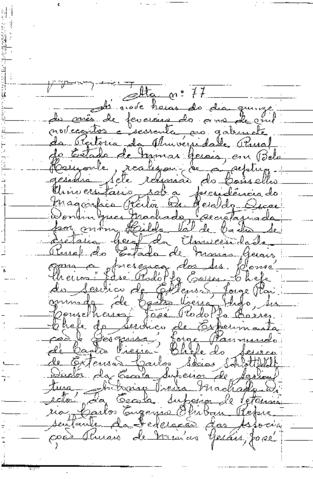 Ata nº 77
Ás nove horas do dia quinze
do mês de fevereiro do ano de mil
novecentos e sessenta no gabinete
da Reitoria da Universidade Rural
do Estado de Minas Gerais, em Belo
Horizonte, realizou-se a septua-
gésima sete reunião do Conselho
Universitário, sob a presidência do
Magnífico Reitor Dr. Geraldo Oscar
Domingues Machado, secretariada
por mim, Hilda
Secretária Geral da Universidade
Rural do Estado de Minas Gerais,
com a presença dos srs.
José Rodolfo Torres, Chefe
do Serviço de Extensão, Jorge Rai
mundo de Castro
Conselheiros José Rodolfo Torres,
Chefe do Serviço de Experimenta
ção e Pesquisa, Jorge Raimundo
de Castro Vieira, Chefe do Serviço
de Extensão, Carlos
Diretor da Escola Superior de Agricul
tura, Vieira Machado, Di
retor da Escola Superior de Veteriná
ria, Carlos Eugenio Repre
sentante da Federação das Associa
ções Rurais de Minas Gerais, José